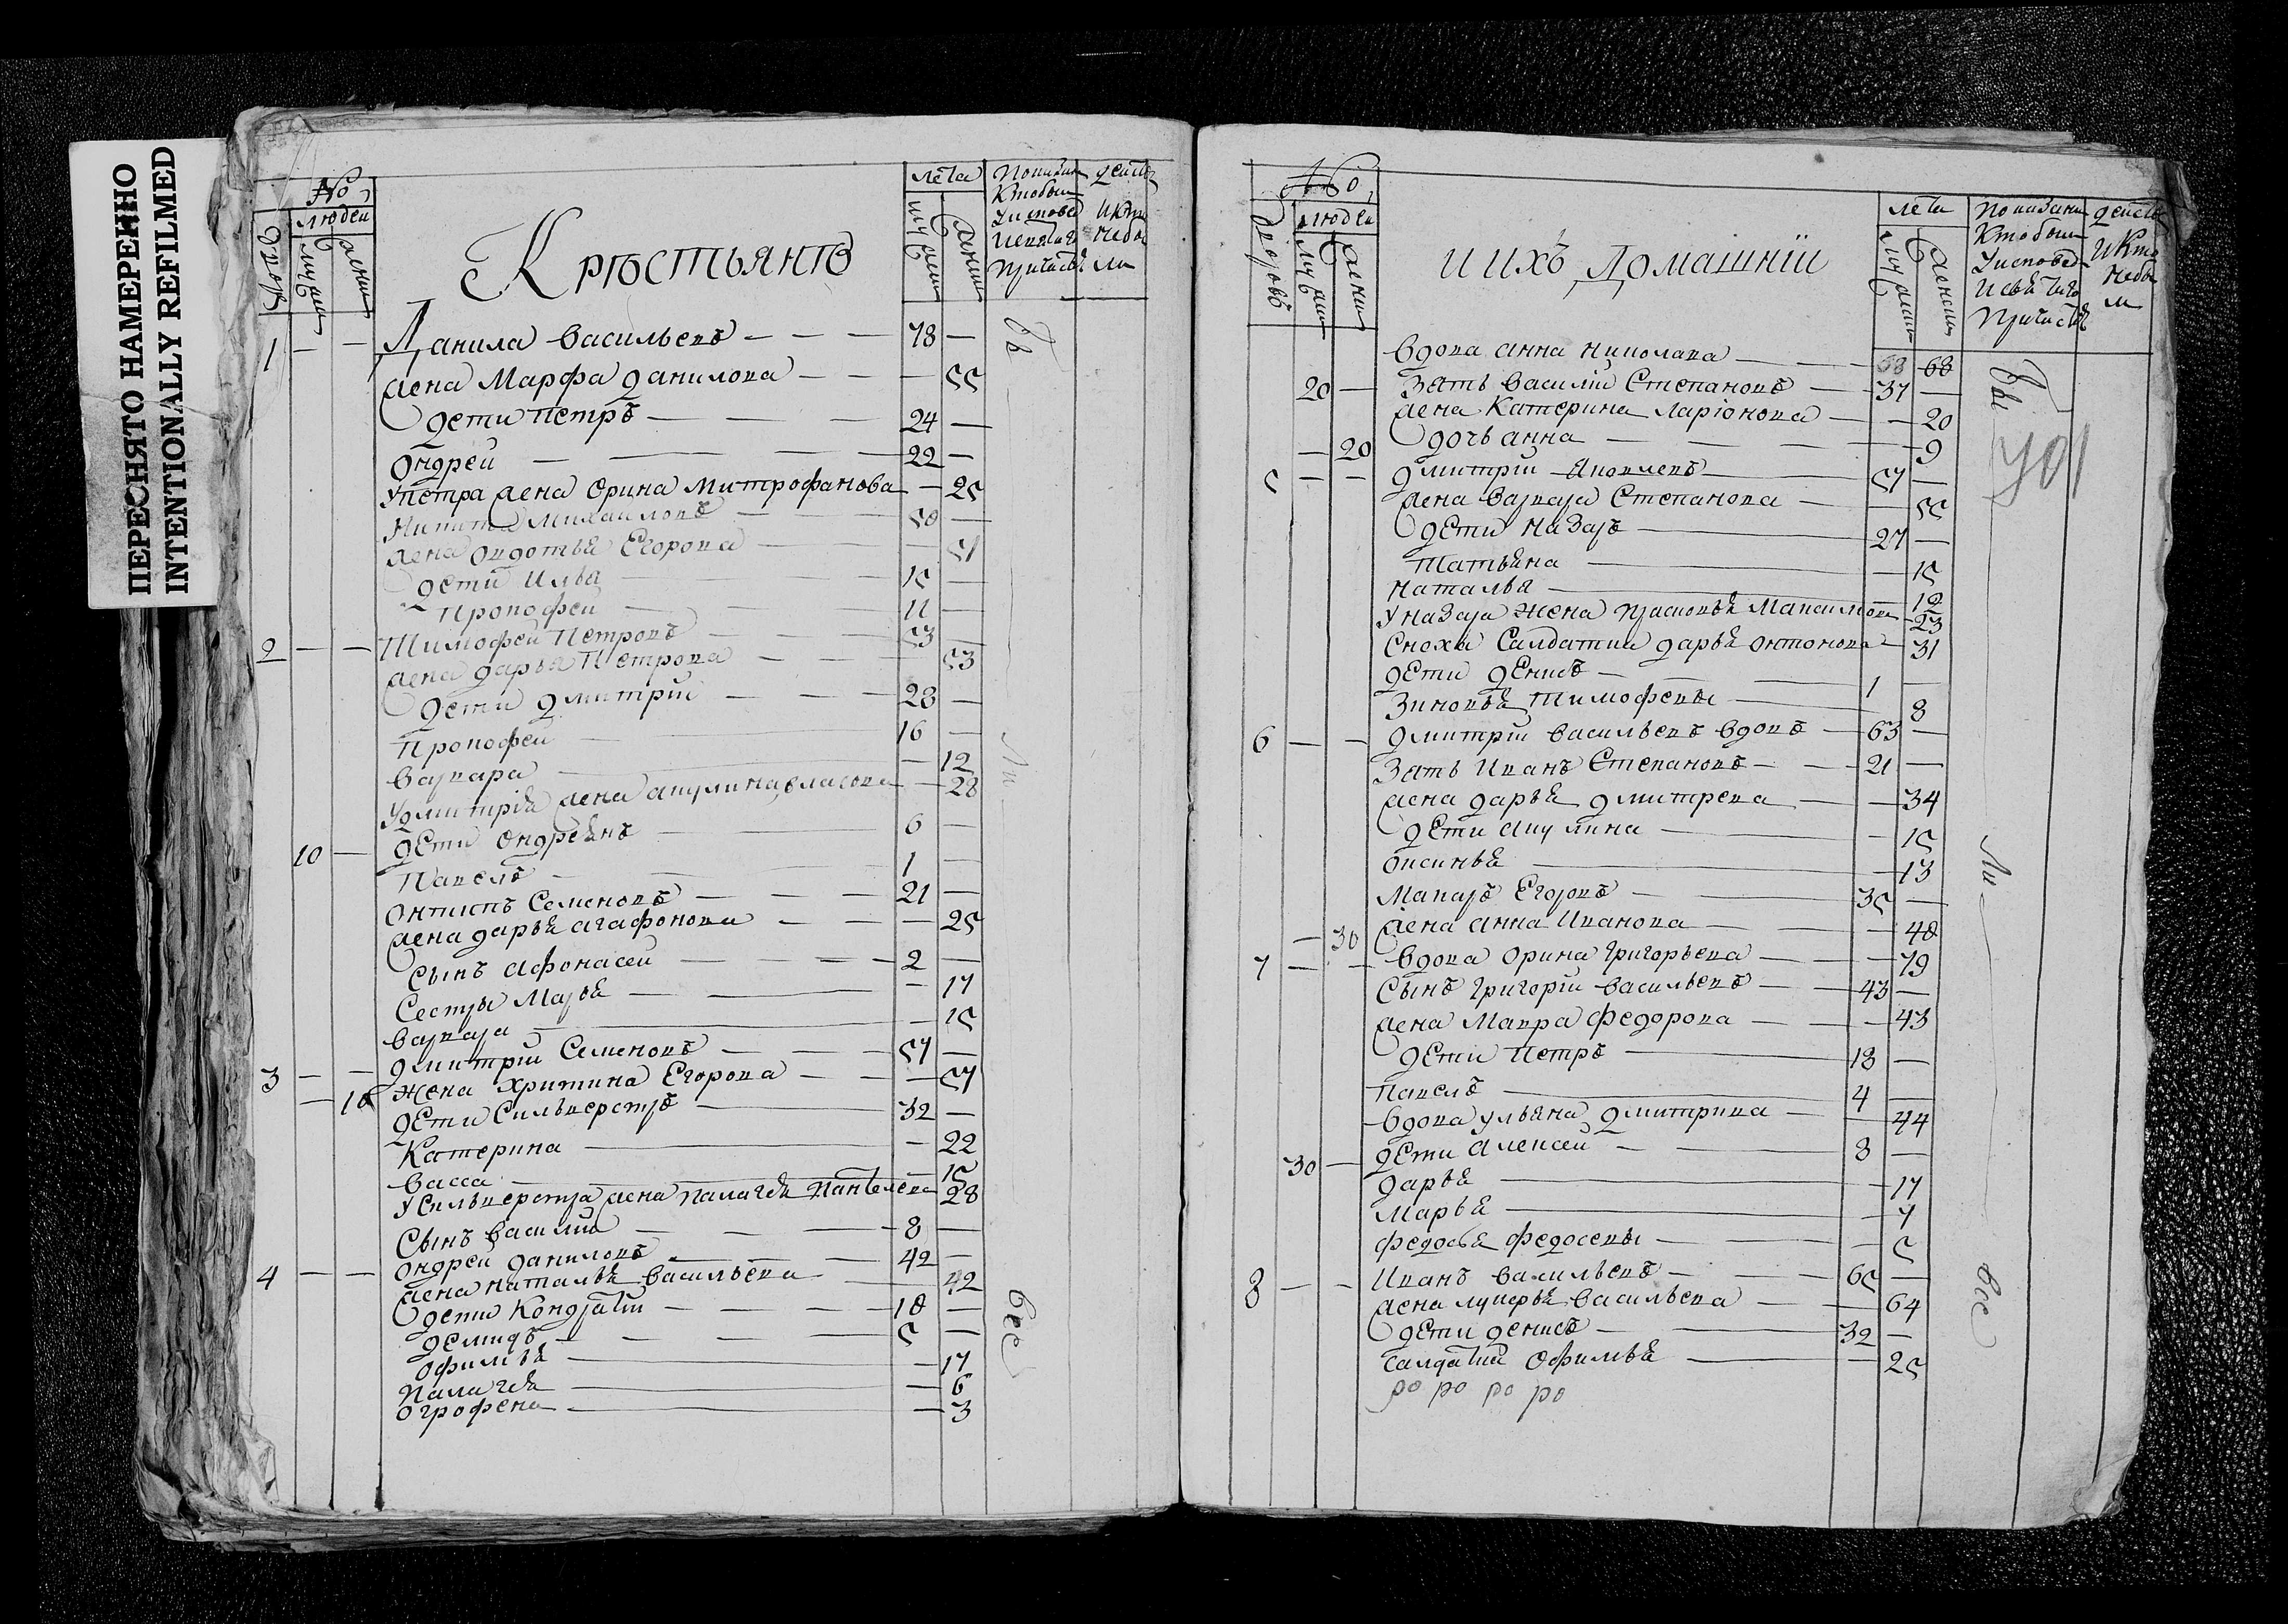 ПЕРЕСНЯТО НАМЕРЕННО
INTENTIONALLY REFILMED
№
людей
дворов
мужеи
жении
Крѣстьянѣ
лета
мужеи
жении
Показани
Кто был
Деиств
И кто
не бы
ли
1 — — Данила Васильевъ — — — 78 —
жена Марфа Данилова — — — 55
Дети Петръ — — — 24 —
Ондреи — — — 22 —
У Петра жена Орина Митрофанова — 25
Никита Михаиловъ — 50 —
жена Овдотья Егорова — 51
Дети Илья — 15 —
Прокофеи — 11 —
2 — — Тимофеи Петровъ — 53 —
жена Дарья Петрова — 53
Дети Дмитрии — 28 —
Прокофеи — 16 —
Варвара — 12
У Дмитрия жена Акулина Власова — 28
10 — Дети Ондреянъ — 6 —
Павелъ — 1 —
Онтипъ Семеновъ — 21 —
жена Дарья Агафонова — 25
Сынъ Афонасеи — 2 —
Сестры Марья — 17
Варвара — 15
3 — — Дмитрии Семеновъ — 57 —
— 10 Жена Хритина Егорова — 57
Дети Сильверстръ — 32 —
Катерина — 22
Васса — 15
У Сильверстра жена Палагея Пантелева 28
Сынъ Василии — 8 —
4 — — Ондреи Даниловъ — 42 —
жена Наталья Васильева — 42
Дети Кондратии — 18 —
Демидъ — 5 —
Офимья — 17
Палагея — 6
Огрофена — 3
бы
ли
все
№
людеи
дворовъ
мужеи
жении
и ихъ Домашнїи
лета
мужеи
жении
Показани
Кто был
Деиств
И Кто
не бы
ли
401
Вдова Анна Николава — 68 68
20 — Зять Василии Степановъ — 37 —
жена Катерина Ларионова — 20
— 20 Дочь Анна — 9
5 — — Дмитрии Яковлевъ — 57 —
жена Варвара Степанова — 55
Дети Назаръ — 27 —
Татьяна — 15
Наталья — 12
У Назара Жена Прасковья Максимова — 23
Сноха Салдатка Дарья Онтонова — 31
Дети Денисъ — 1 —
Зиновья Тимофевы — 8
6 — — Дмитрии Васильевъ вдовъ — 63 —
Зять Иванъ Степановъ — 21 —
жена Дарья Дмитрева — 34
Дети Акулина — 15
Оксинья — 13
Макаръ Егоровъ — 35 —
— 30 жена Анна Иванова — 40
7 — — Вдова Орина Григорьева — 79
Сынъ Григории Васильевъ — 43 —
жена Мавра Федорова — 43
Дети Петръ — 18 —
Павелъ — 4 —
Вдова Ульяна Дмитрива — 44
30 — Дети Алексеи — 8 —
Дарья — 17
Марья — 7
Федосья Федосевы — 5
8 — — Иванъ Васильевъ — 65 —
жена Лукерья Васильева — 64
Дети Денисъ — 32 —
Салдатки Офимья — 25
ро ро ро ро
бы
ли
все